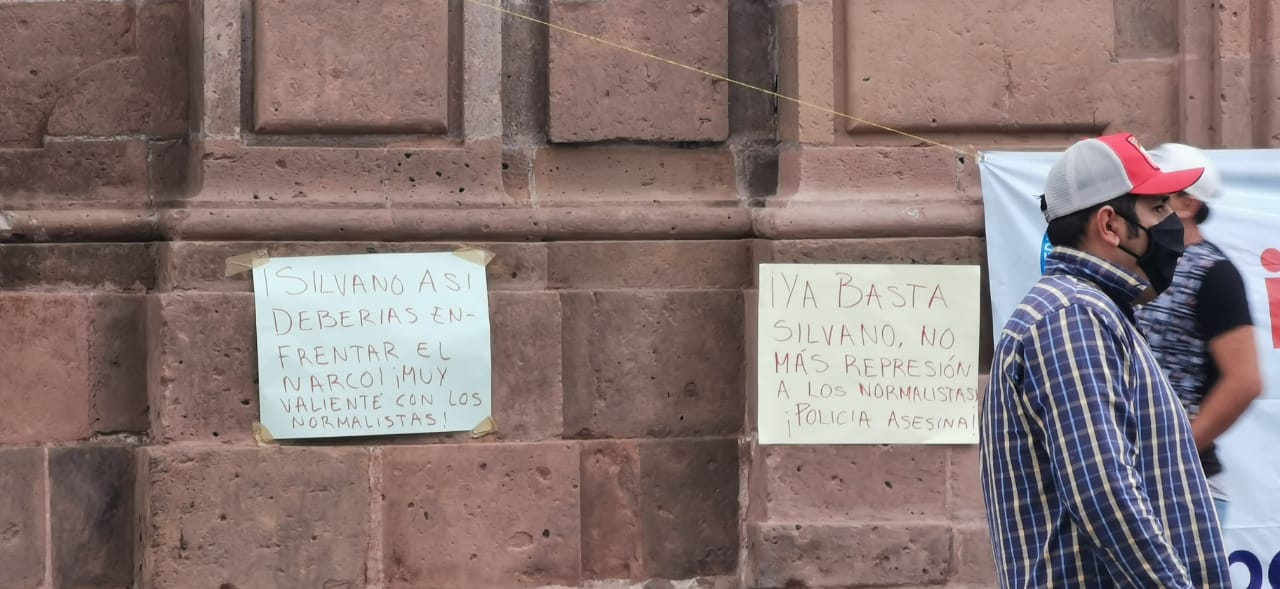 ¡SILVANO ASI
DEBERIAS EN-
FRENTAR EL
NARCO! ¡MUY
VALIENTE CON LOS
NORMALISTAS!
¡YA BASTA
SILVANO, NO
MÁS REPRESIÓN
A LOS NORMALISTAS!
¡POLICIA ASESINA!